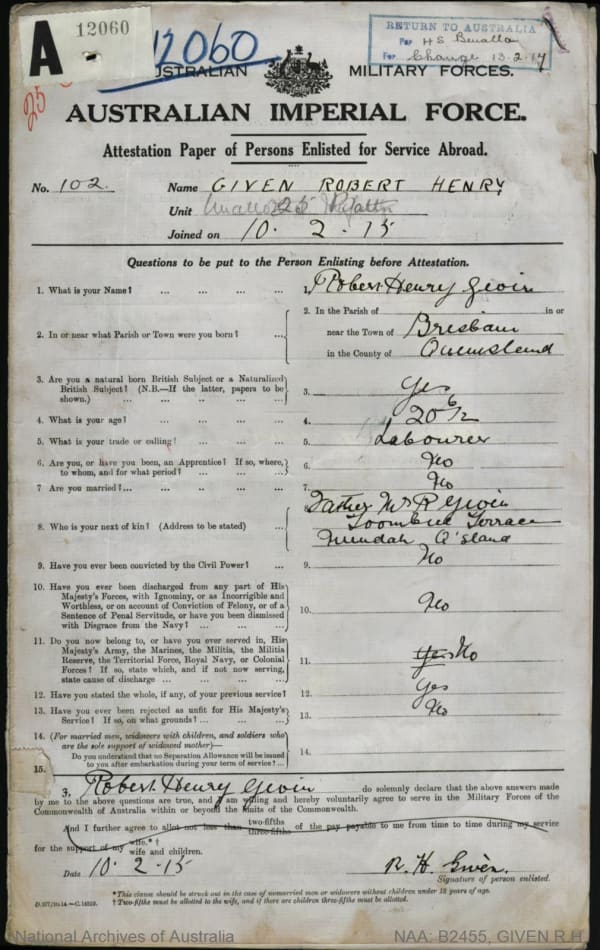 A 12060
12060
25
RETURN TO AUSTRALIA
Per HS Benalla
For Change 13.2.17
AUSTRALIAN MILITARY FORCES.
AUSTRALIAN IMPERIAL FORCE.
Attestation Paper of Persons Enlisted for Service Abroad.
No. 102. Name GIVEN ROBERT HENRY
Unit 25 Battn
Joined on 10. 2. 15
Questions to be put to the Person Enlisting before Attestation.
1. What is your Name? ... ... ... ... 1. Robert Henry Given
2. In or near what Parish or Town were you born? ... 2. In the Parish of in or
near the Town of Brisbane
in the County of Queensland
3. Are you a natural born British Subject or a Naturalized
British Subject? (N.B.—If the latter, papers to be
shown.) ... ... ... ... 3. Yes
4. What is your age? ... ... ... ... 4. 20 6/12
5. What is your trade or calling? ... ... ... 5. Labourer
6. Are you, or have you been, an Apprentice? If so, where,
to whom, and for what period? ... ... ... 6. No
7 Are you married?... ... ... ... ... 7. No
8. Who is your next of kin? (Address to be stated) ... 8. Father Mr R Given
Toombul Terrace
Nundah Q'sland
9. Have you ever been convicted by the Civil Power? ... 9. No
10. Have you ever been discharged from any part of His
Majesty's Forces, with Ignominy, or as Incorrigible and
Worthless, or on account of Conviction of Felony, or of a
Sentence of Penal Servitude, or have you been dismissed
with Disgrace from the Navy? ... ... ... 10. No
11. Do you now belong to, or have you ever served in, His
Majesty's Army, the Marines, the Militia, the Militia
Reserve, the Territorial Force, Royal Navy, or Colonial
Forces? If so, state which, and if not now serving,
state cause of discharge ... ... ... ... 11. Yes No
12. Have you stated the whole, if any, of your previous service? 12. Yes
13. Have you ever been rejected as unfit for His Majesty's
Service? If so, on what grounds? ... ... ... 13. No
14. (For married men, widowers with children, and soldiers who
are the sole support of widowed mother)—
Do you understand that no Separation Allowance will be issued
to you after embarkation during your term of service?... 14.
15.
I, Robert Henry Given do solemnly declare that the above answers made
by me to the above questions are true, and I am willing and hereby voluntarily agree to serve in the Military Forces of the
Commonwealth of Australia within or beyond the limits of the Commonwealth.
And I further agree to allot not less than two-fifths three-fifths of the pay payable to me from time to time during my service
for the support of my wife.*†
wife and children.
Date 10. 2. 15 R. H. Given.
Signature of person enlisted.
*This clause should be struck out in the case of unmarried men or widowers without children under 18 years of age.
† Two-fifths must be allotted to the wife, and if there are children three-fifths must be allotted.
National Archives of Australia NAA: B2455, GIVEN R H